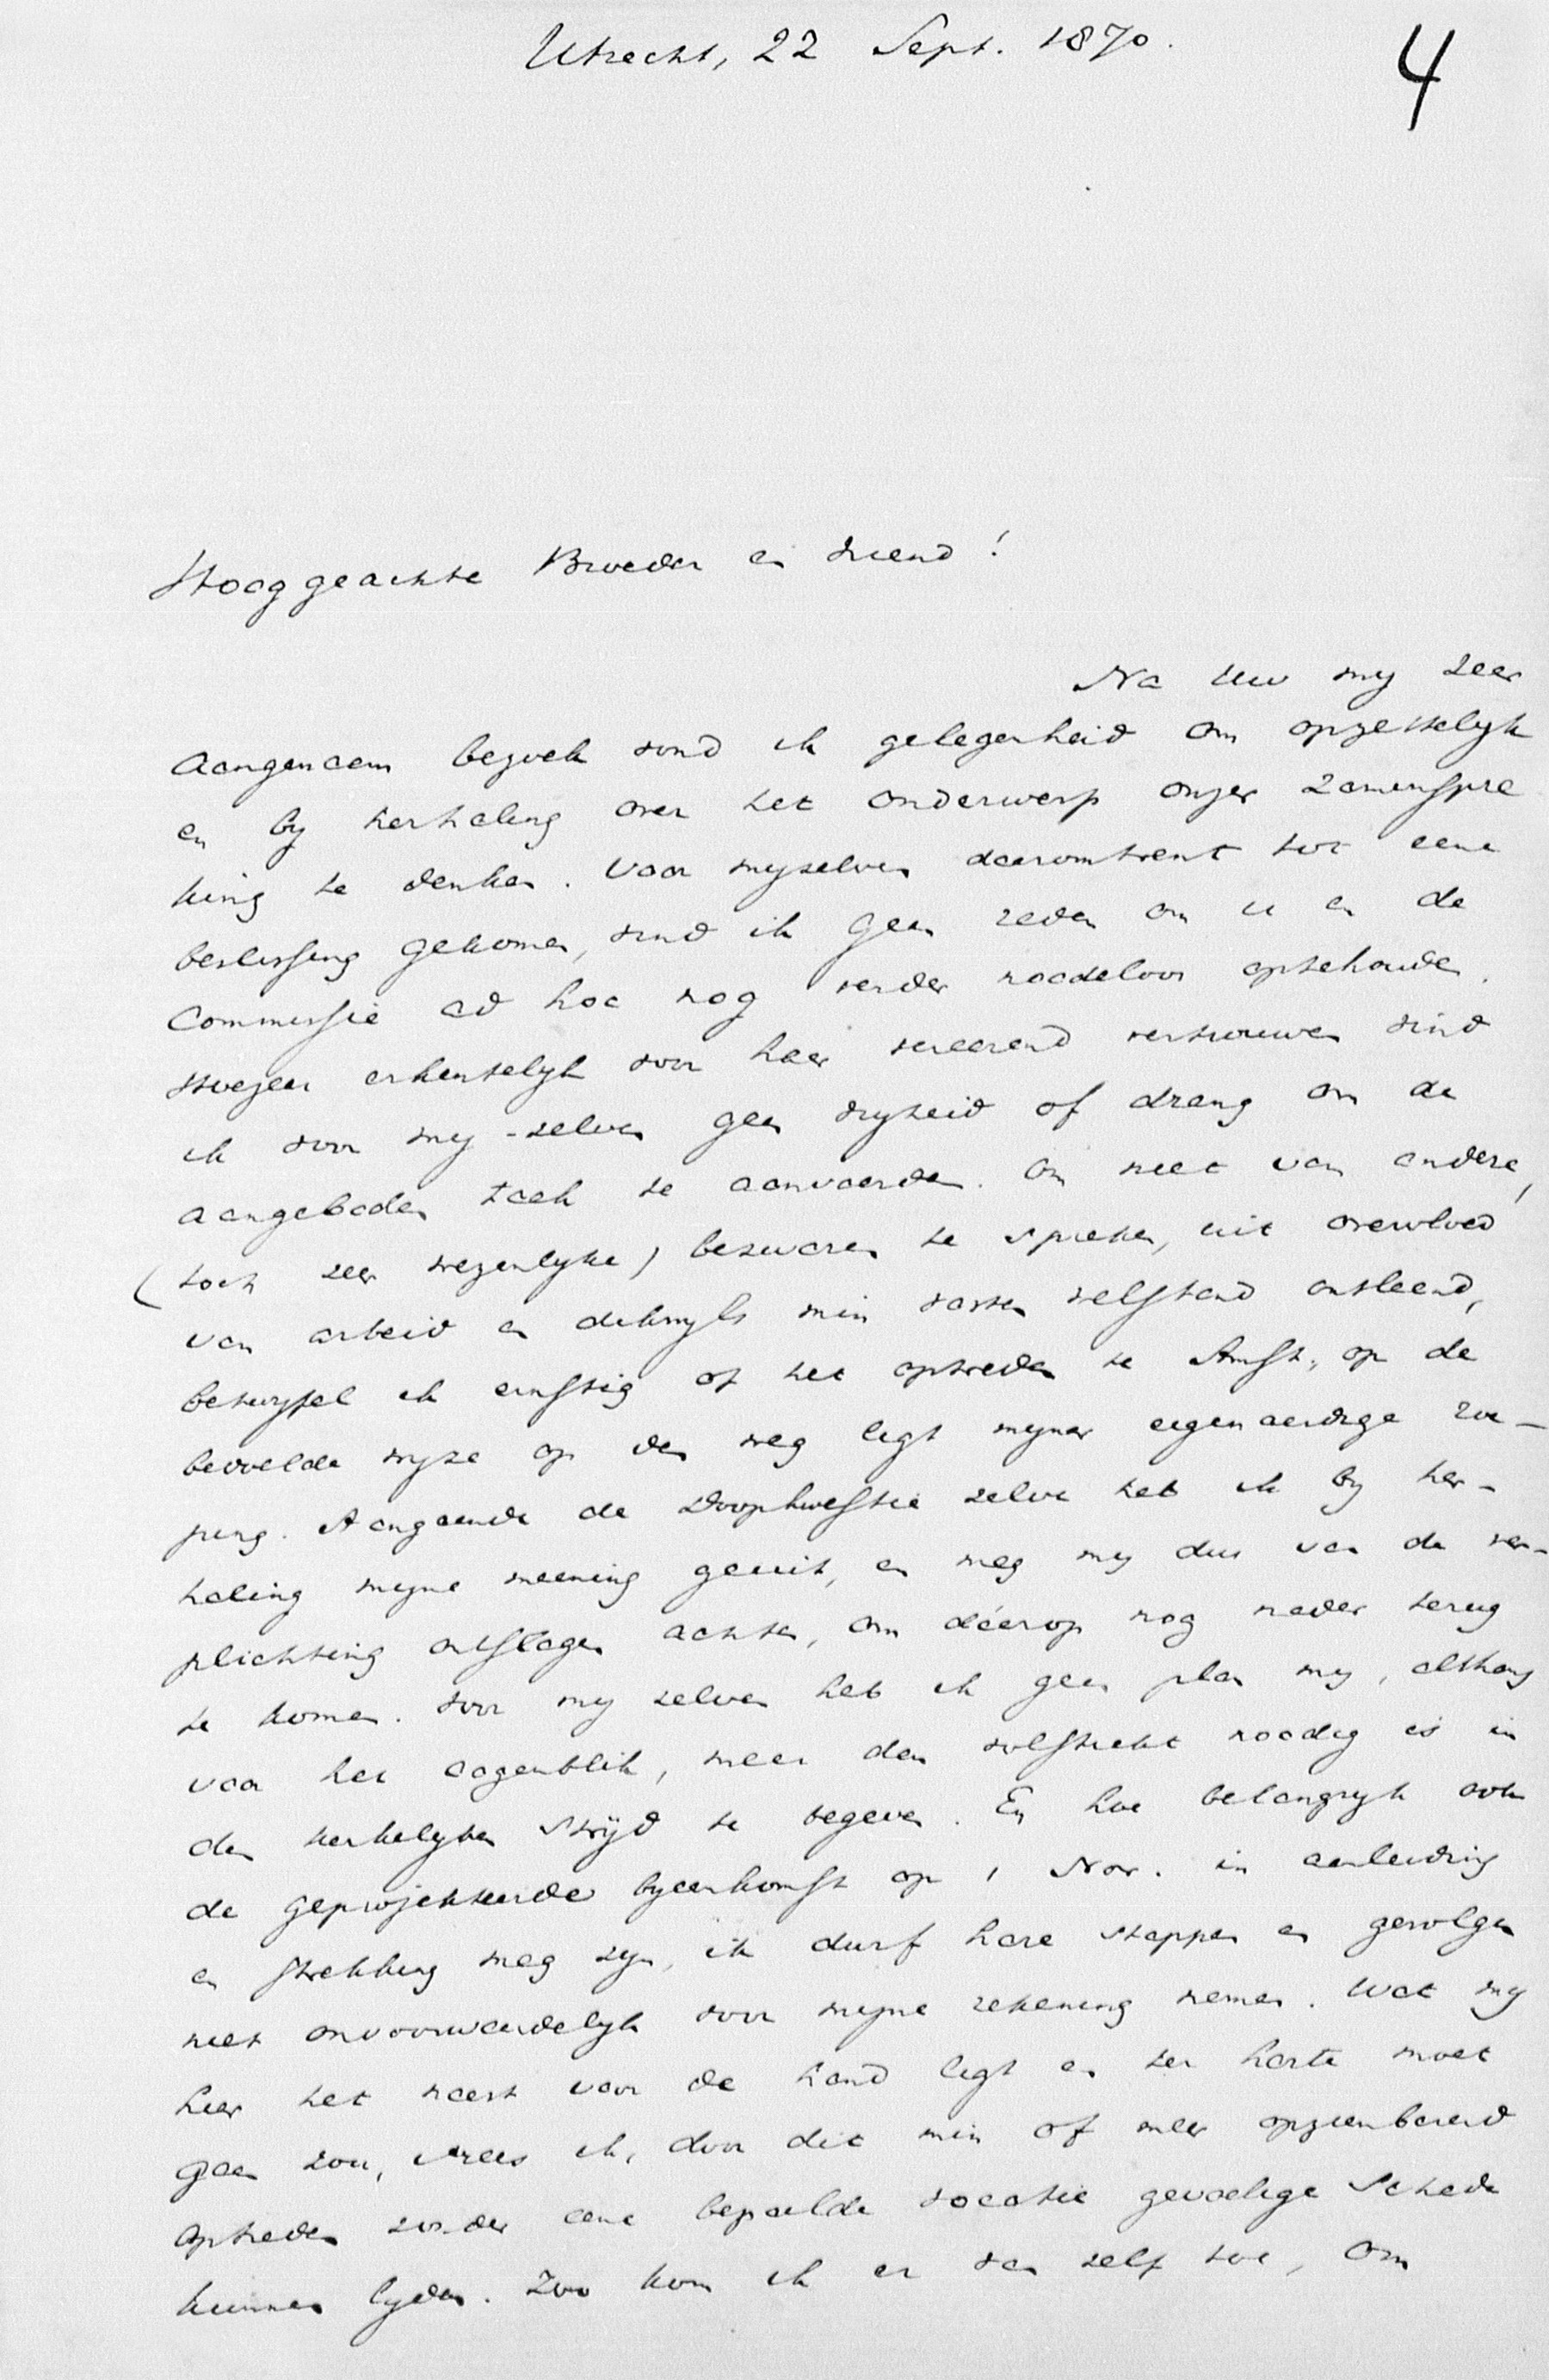 Utrecht, 22 Sept. 1870.
4
Hooggeachte Broeder en vriend!
Na uw my zeer
aangenaam bezoek vond ik gelegenheid om opzettelyk
en by herhaling over het onderwerp onzer zamenspre
king te denken. Voor myzelven daaromtrent tot eene
beslissing gekomen, vind ik geen reden om u en de
Commissie ad hoc nog verder noodeloos optehouden.
Hoezeer erkentelyk voor haar vereerend vertrouwen vind
ik voor my-zelven geen vryheid of drang om de
aangeboden taak te aanvaarden. Om niet van andere,
(toch zeer wezenlyke) bezwaren te spreken, uit overvloed
van arbeid en dikwyls min vasten welstand ontleend,
betwyfel ik ernstig of het optreden te Amst., op de
bedoelde wyze op den weg ligt myner eigenaardige roe-
ping. Aangaande de Doopkwestie zelve heb ik by her-
haling myne meening geuit, en mag my dus van de ver-
plichting ontslagen achten, om dáarop nog nader terug
te komen. Voor my zelven heb ik geen plan my, althans
voor het oogenblik, meer dan volstrekt noodig is in
den kerkelyken stryd te begeven. En hoe belangryk ook
de geprojekteerde byeenkomst op 1 Nov. in aanleiding
en strekking mag zyn, ik durf hare stappen en gevolgen
niet onvoorwaardelyk voor myne rekening nemen. Wat my
hier het naast voor de hand ligt en ter harte moet
gaan zou, vrees ik, door dit min of meer opzienbarend
optreden zonder eene bepaalde vocatie gevoelige schade
kunnen lyden. Zoo kom ik er van zelf toe, om